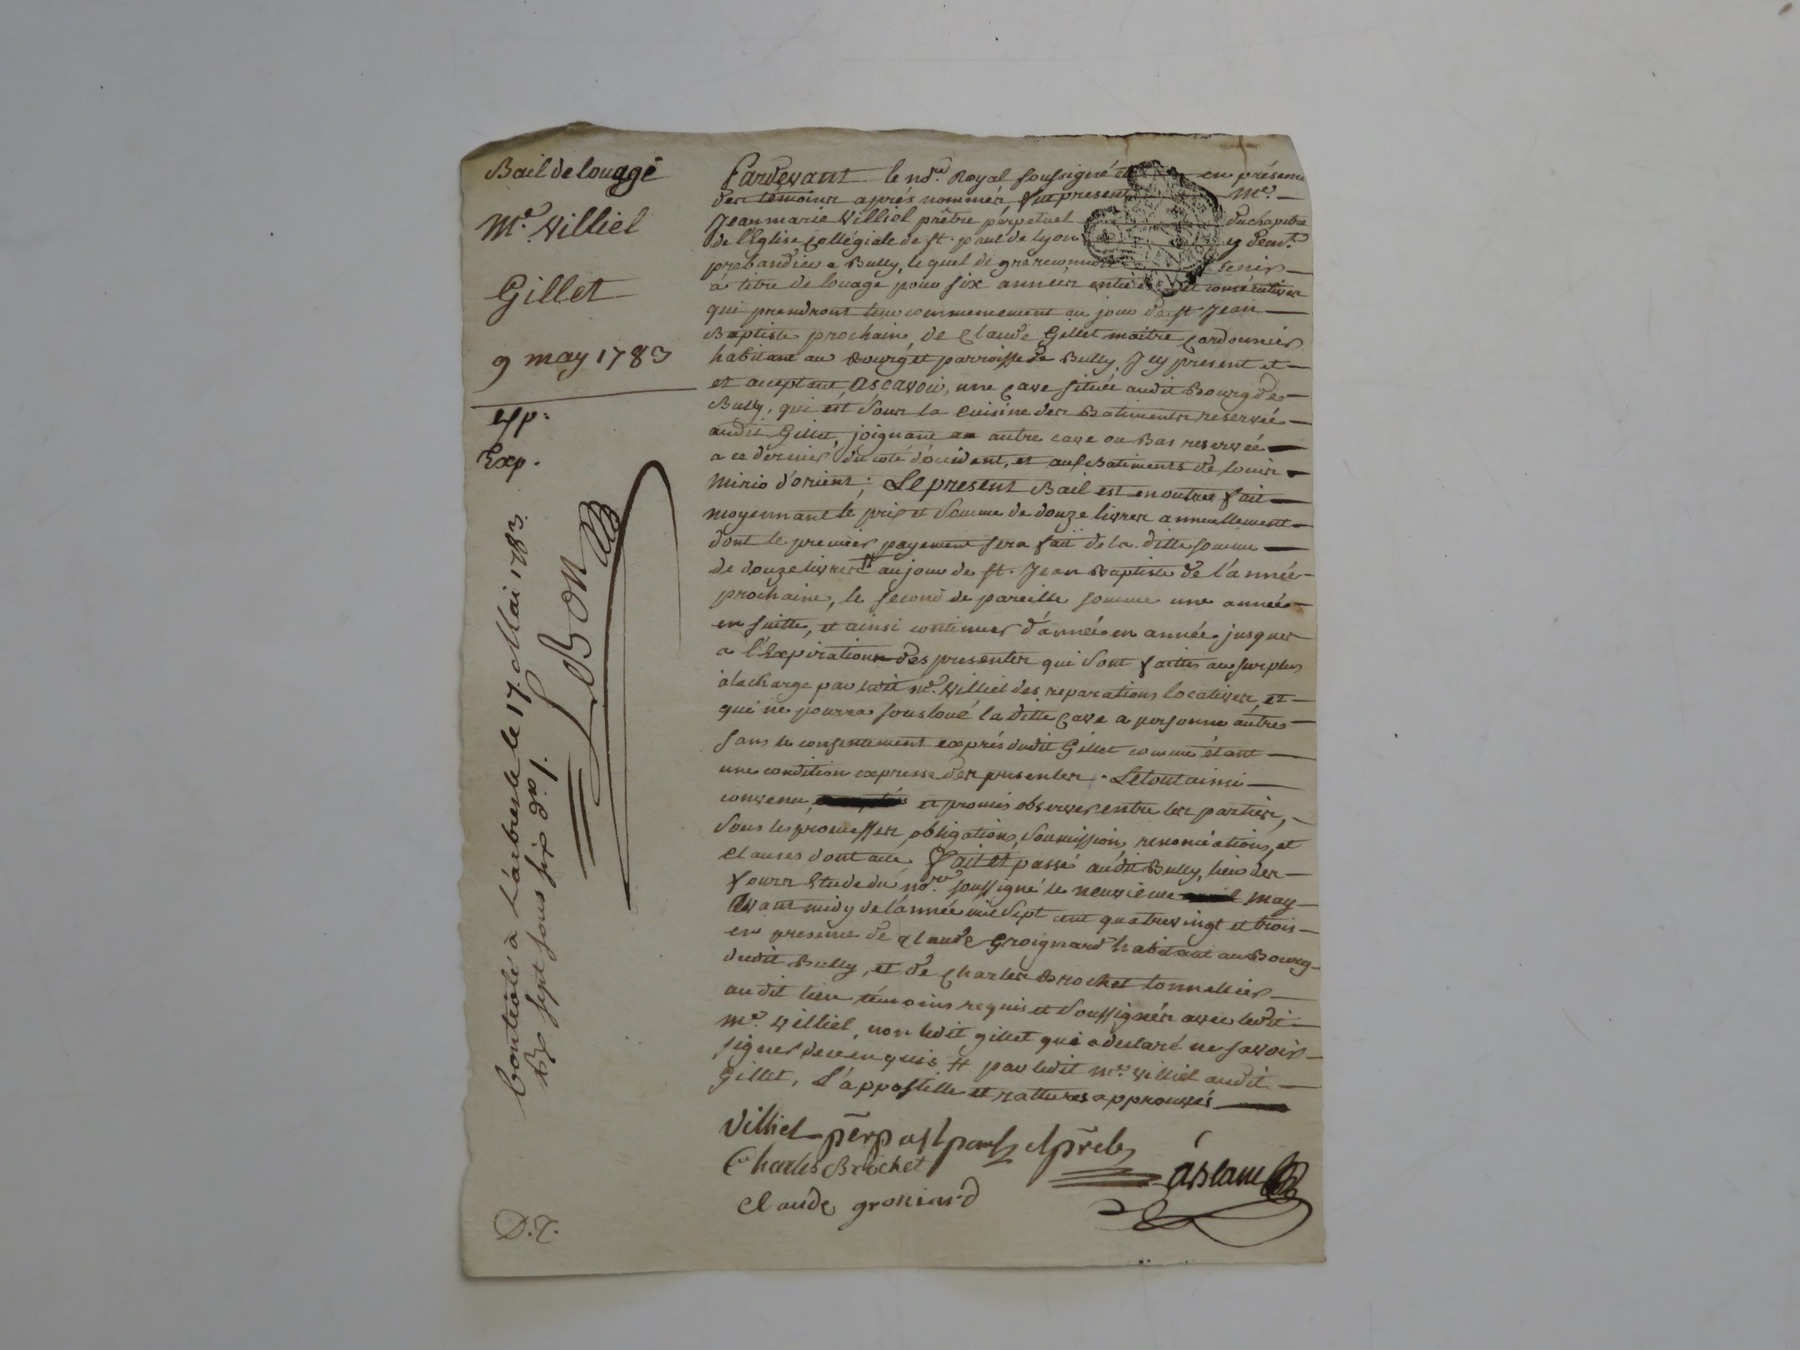 Bail de louage
Me. Villiel
Gillet
9 may 1783
exp:
Exp.
Controlé à L'arbresle le 17. Mai 1783.
sept sous six drs.
LeBon
D.T.
Pardevant le nore. Royal soussigné et en présence
des témoins aprés nommés, fut présent Me.
Jean marie Villiel prêtre pérpetuel du chapitre
de l'Eglise Collégiale de st. paul de Lyon y demt.
prebandier a Bully, le quel de gré reconnoit tenir
à titre de louage pour six années entieres et consécutives
qui prendront leur commencement au jour de st. Jean
Baptiste prochain, de Claude Gillet maitre Cordonnier
habitant au Bourg et parroisse de Bully, Icy present et
et acceptant, Ascavoir, une Cave située audit Bourg de
Bully, qui est sous la Cuisine des Batiments reservée
audit Gillet, joignant autre cave ou Bas reservée
a ce dérnier du coté d'occident, et aux Batiments de Louis
Mirio d'orient; Le present Bail est en outre fait
moyennant le prix et somme de douze livres annuellement
dont le premier payement sera fait de la ditte somme
de douze livres # au jour de st. Jean Baptiste de l'année
prochaine, le second de pareille somme une année
en suitte, et ainsi continuer d'année en année jusques
a l'Expiration des presentes qui sont faites au surplus
à la charge par ledit me. Villiel des reparations locatives, et
qui ne pourra sousloué la ditte Cave a personne autre
sans le consentement exprés dudit Gillet comme étant
une condition expresse des presentes. Le tout ainsi
convenu, et promis observer entre les parties,
sous les promesses, obligations, soumissions, renonciations, et
clauses dont acte fait et passé audit Bully, lieu des
fours Etude du nore. soussigné le neuvieme may
Avant midy de l'année mil sept cent quatrevingt et trois
en presence de Claude Groignard habitant au Bourg
dudit Bully, et de Charles Brochet tonnellier
audit lieu témoins requis et soussignés avec ledit
me. Villiel, non ledit gillet qui a declaré ne savoir
signer de ce enquis # par ledit me. Villiel audit
Gillet, L'appostille et rattures approuvés
Villiel perp
Charles Brochet
Claude groniard